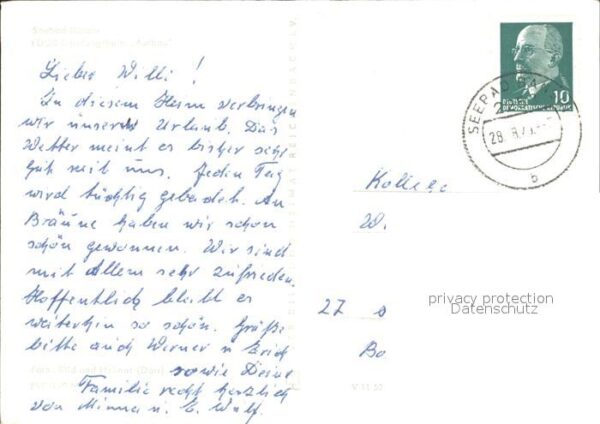 Lieber Willi!
In diesem Heim verbringen
wir unseren Urlaub. Das
Wetter meint es bisher sehr
gut mit uns. Jeden Tag
wird tüchtig gebadet. An
Bräune haben wir schon
schön gewonnen. Wir sind
mit Allem sehr zufrieden.
Hoffentlich bleibt es
weiterhin so schön. Grüße
bitte auch Werner u Erich
sowie Deine
Familie recht herzlich
von Minna u. E. Wulf.
SEEBAD
28. 8.7
b
10
DEUTSCHE
DEMOKRATISCHE REPUBLIK
Kollege
W.
27
Bo
privacy protection
Datenschutz